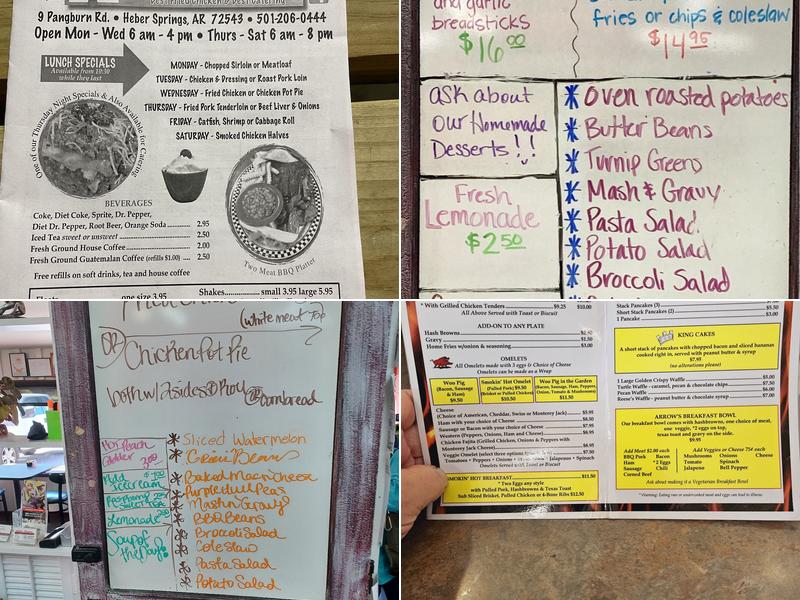 Best Fried Chicken & Best Catering
9 Pangburn Rd. • Heber Springs, AR 72543 • 501-206-0444
Open Mon - Wed 6 am - 4 pm • Thurs - Sat 6 am - 8 pm
LUNCH SPECIALS
Available from 10:30
while they last
MONDAY - Chopped Sirloin or Meatloaf
TUESDAY - Chicken & Dressing or Roast Pork Loin
WEDNESDAY - Fried Chicken or Chicken Pot Pie
THURSDAY - Fried Pork Tenderloin or Beef Liver & Onions
FRIDAY - Catfish, Shrimp or Cabbage Roll
SATURDAY - Smoked Chicken Halves
One of our Thursday Night Specials & Also Available for Catering
BEVERAGES
Coke, Diet Coke, Sprite, Dr. Pepper,
Diet Dr. Pepper, Root Beer, Orange Soda 2.95
Iced Tea sweet or unsweet 2.50
Fresh Ground House Coffee 2.00
Fresh Ground Guatemalan Coffee (refills $1.00) 2.50
Free refills on soft drinks, tea and house coffee
Two Meat BBQ Platter
Floats one size 3.95
Shakes small 3.95 large 5.95
and garlic
breadsticks
$16.00
fries or chips & coleslaw
$14.95
ask about
our Homemade
Desserts!!
Fresh
Lemonade
$2.50
* Oven roasted potatoes
* Butter Beans
* Turnip Greens
* Mash & Gravy
* Pasta Salad
* Potato Salad
* Broccoli Salad
(white meat
OR Chicken Pot Pie
both w/ 2 sides & roll or cornbread
* Sliced Watermelon
* Green Beans
* Baked Mac n Cheese
* Purple Hull Peas
* Mash n Gravy
* BBQ Beans
* Broccoli Salad
* Cole slaw
* Pasta Salad
* Potato Salad
Peach
Cobbler
Add
Ice cream
Raspberry
Sweet Tea
Lemonade
Soup of
the Day!
* With Grilled Chicken Tenders $9.25 $10.00
All Above Served with Toast or Biscuit
ADD-ON TO ANY PLATE
Hash Browns
Gravy $1.50
Home Fries w/onion & seasoning $3.00
OMELETS
All Omelets made with 3 eggs & Choice of Cheese
Omelets can be made as a Wrap
Woo Pig
(Bacon, Sausage
& Ham)
$9.50
Smokin' Hot Omelet
(Pulled Pork)
(Brisket or Pulled Chicken)
Woo Pig in the Garden
(Bacon, Sausage, Ham, Peppers,
Onion, Tomato & Mushrooms)
$11.50
Cheese
(Choice of American, Cheddar, Swiss or Monterey Jack) $6.95
Ham with your choice of cheese $8.50
Sausage or Bacon with your choice of cheese
Western (Peppers, Onions, Ham and Cheese)
Chicken Fajita (Grilled Chicken, Onions & Peppers with
Monterey Jack Cheese)
Veggie Omelet
Omelets Served with Toast or Biscuit
SMOKIN HOT BREAKFAST $11.50
* Two Eggs any style
with Pulled Pork, Hashbrowns & Texas Toast
Sub Sliced Brisket, Pulled Chicken or 4-Bone Ribs $12.50
Stack Pancakes (3)
Short Stack Pancakes (2) $5.00
1 Pancake $3.00
KING CAKES
A short stack of pancakes with chopped bacon and sliced bananas
cooked right in, served with peanut butter & syrup
$7.95
(no alterations please)
1 Large Golden Crispy Waffle $5.00
Turtle Waffle - caramel, pecan & chocolate chips $7.50
Pecan Waffle $6.00
Reese's Waffle - peanut butter, syrup & chocolate $7.00
ARROW'S BREAKFAST BOWL
Our breakfast bowl comes with hashbrowns, one choice of meat,
one veggie, *2 eggs on top,
texas toast and gravy on the side.
$9.95
Add Meat $2.00 each
BBQ Pork Bacon
Ham *2 Eggs
Sausage
Corned Beef
Add Veggies or Cheese 75¢ each
Mushrooms Onions Cheese
Tomato Spinach
Jalapeno Bell Pepper
Ask about making it a Vegetarian Breakfast Bowl
*Warning: Eating raw or undercooked meat and eggs can lead to illness.